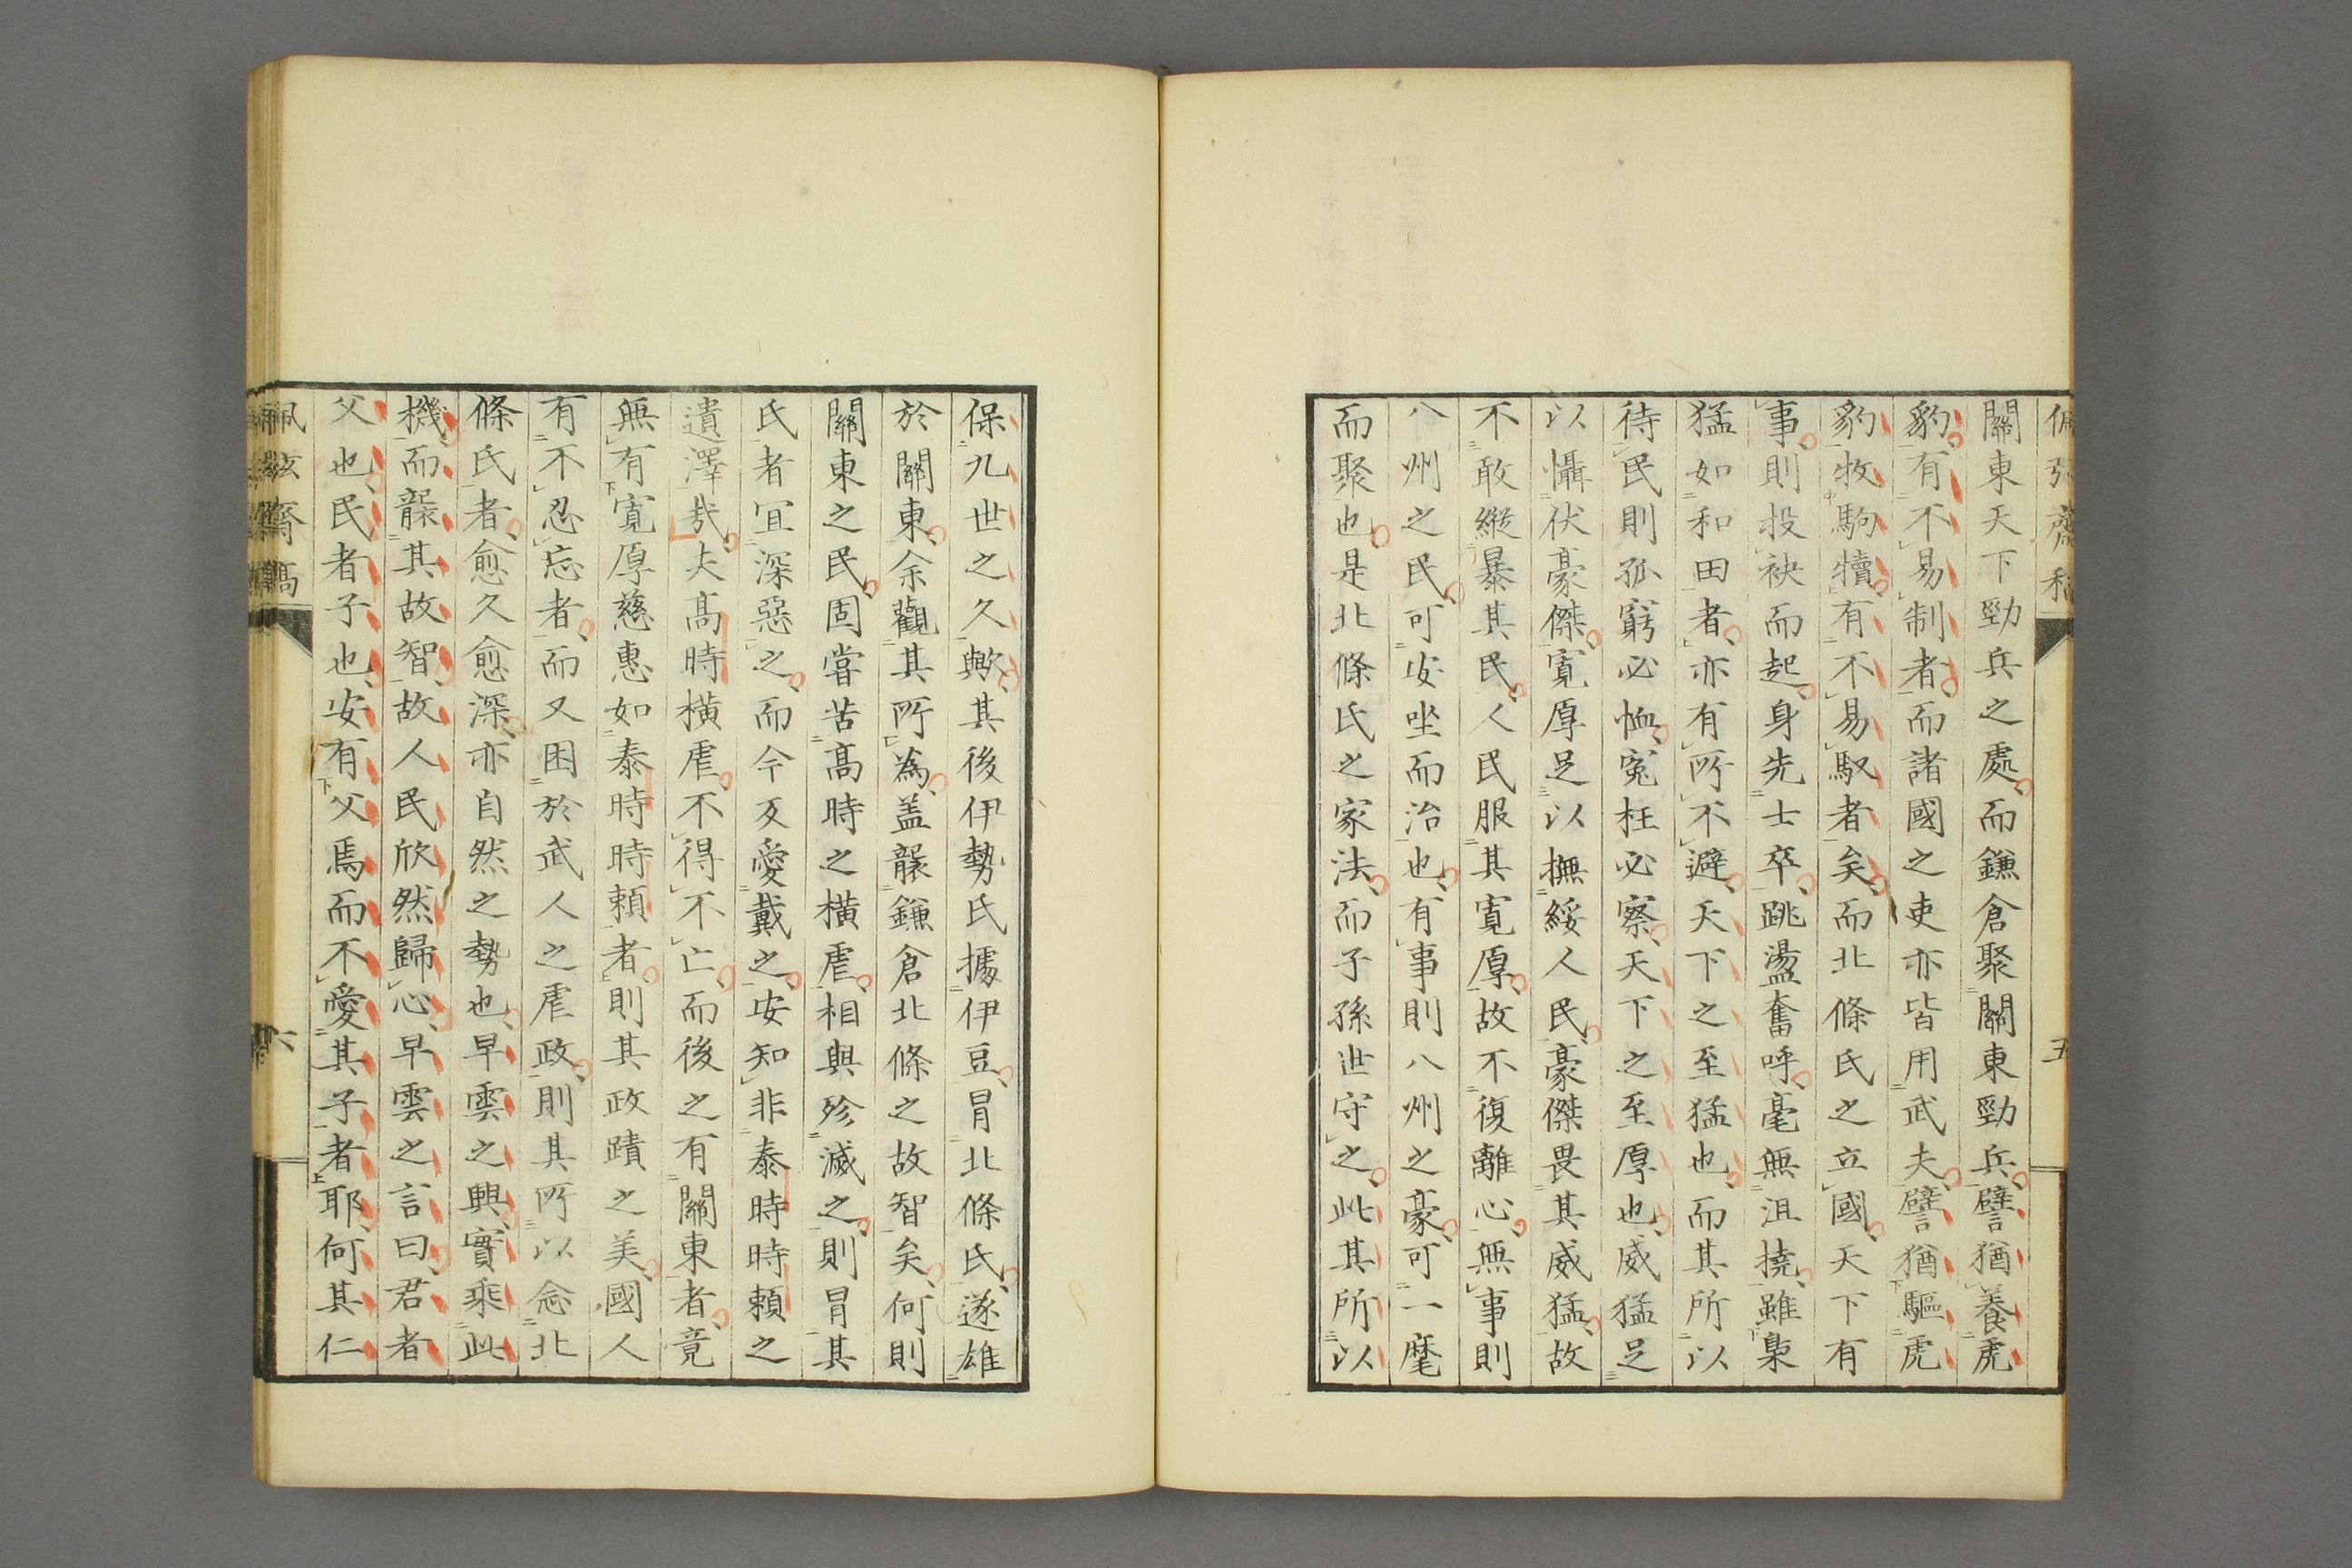 關東天下勁兵之處而鎌倉聚關東勁兵譬猶養虎
豹有不易制者而諸國之吏亦皆用武夫譬猶驅虎
豹牧駒犢有不易馭者矣而北條氏之立國天下有
事則投袂而起身先士卒跳盪奮呼毫無沮撓雖梟
猛如和田者亦有所不避天下之至猛也而其所以
待民則孤窮必恤冤枉必察天下之至厚也威猛足
以懾伏豪傑寬厚足以撫綏人民豪傑畏其威猛故
不敢縱暴其民人民服其寬厚故不復離心無事則
八州之民可安坐而治也有事則八州之豪可一麾
而聚也是北條氏之家法而子孫世守之此其所以
五
保九世之久歟其後伊勢氏據伊豆冒北條氏遂雄
於關東余觀其所為盖襲鎌倉北條之故智矣何則
關東之民固嘗苦高時之橫虐相與殄滅之則冒其
氏者宜深惡之而今反愛戴之安知非泰時時賴之
遺澤哉夫高時橫虐不得不亡而後之有關東者竟
無有寬厚慈惠如泰時時賴者則其政蹟之美國人
有不忍忘者而又困於武人之虐政則其所以念北
條氏者愈久愈深亦自然之勢也早雲之興實乘此
機而襲其故智故人民欣然歸心早雲之言曰君者
父也民者子也安有父焉而不愛其子者耶何其仁
佩弦齋稿
六